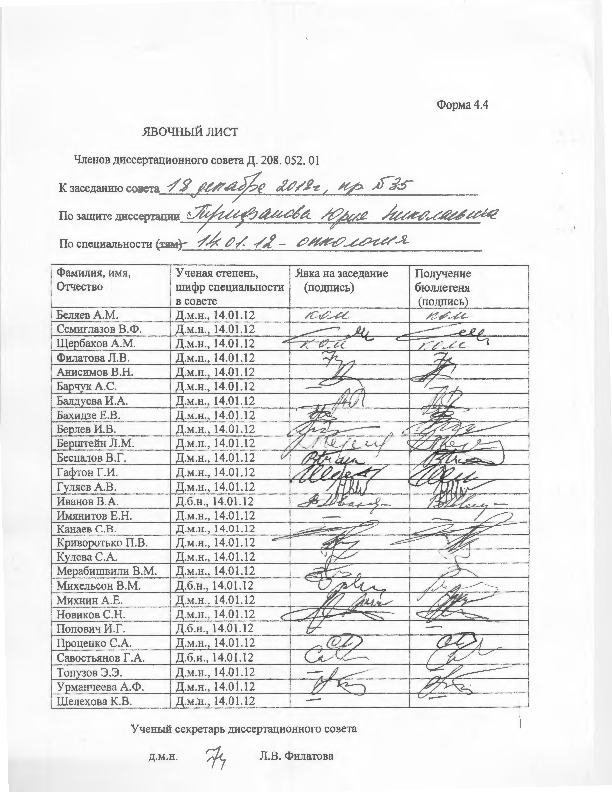 Форма 4.4
ЯВОЧНЫЙ ЛИСТ
Членов диссертационного совета Д. 208. 052. 01
К заседанию совета 18 декабря 2018г, пр №35
По защите диссертации Юрия Николаевича
По специальности (там) 14.01.12 – онкология
Фамилия, имя, Отчество Ученая степень, шифр специальности в совете Явка на заседание (подпись) Получение бюллетеня (подпись)
Беляев А.М. Д.м.н., 14.01.12 ком ком
Семиглазов В.Ф. Д.м.н., 14.01.12
Щербаков А.М. Д.м.н., 14.01.12 ком ком
Филатова Л.В. Д.м.н., 14.01.12
Анисимов В.Н. Д.м.н., 14.01.12
Барчук А.С. Д.м.н., 14.01.12
Балдуева И.А. Д.м.н., 14.01.12
Бахидзе Е.В. Д.м.н., 14.01.12
Берлев И.В. Д.м.н., 14.01.12
Берштейн Л.М. Д.м.н., 14.01.12
Беспалов В.Г. Д.м.н., 14.01.12
Гафтон Г.И. Д.м.н., 14.01.12
Гуляев А.В. Д.м.н., 14.01.12
Иванов В.А. Д.б.н., 14.01.12
Имянитов Е.Н. Д.м.н., 14.01.12 — —
Канаев С.В. Д.м.н., 14.01.12
Криворотько П.В. Д.м.н., 14.01.12
Кулева С.А. Д.м.н., 14.01.12
Мерабишвили В.М. Д.м.н., 14.01.12
Михельсон В.М. Д.б.н., 14.01.12
Михнин А.Е. Д.м.н., 14.01.12
Новиков С.Н. Д.м.н., 14.01.12
Попович И.Г. Д.б.н., 14.01.12
Проценко С.А. Д.м.н., 14.01.12
Савостьянов Г.А. Д.б.н., 14.01.12
Топузов Э.Э. Д.м.н., 14.01.12 — —
Урманчеева А.Ф. Д.м.н., 14.01.12
Шелехова К.В. Д.м.н., 14.01.12 — —
Ученый секретарь диссертационного совета
д.м.н. Л.В. Филатова